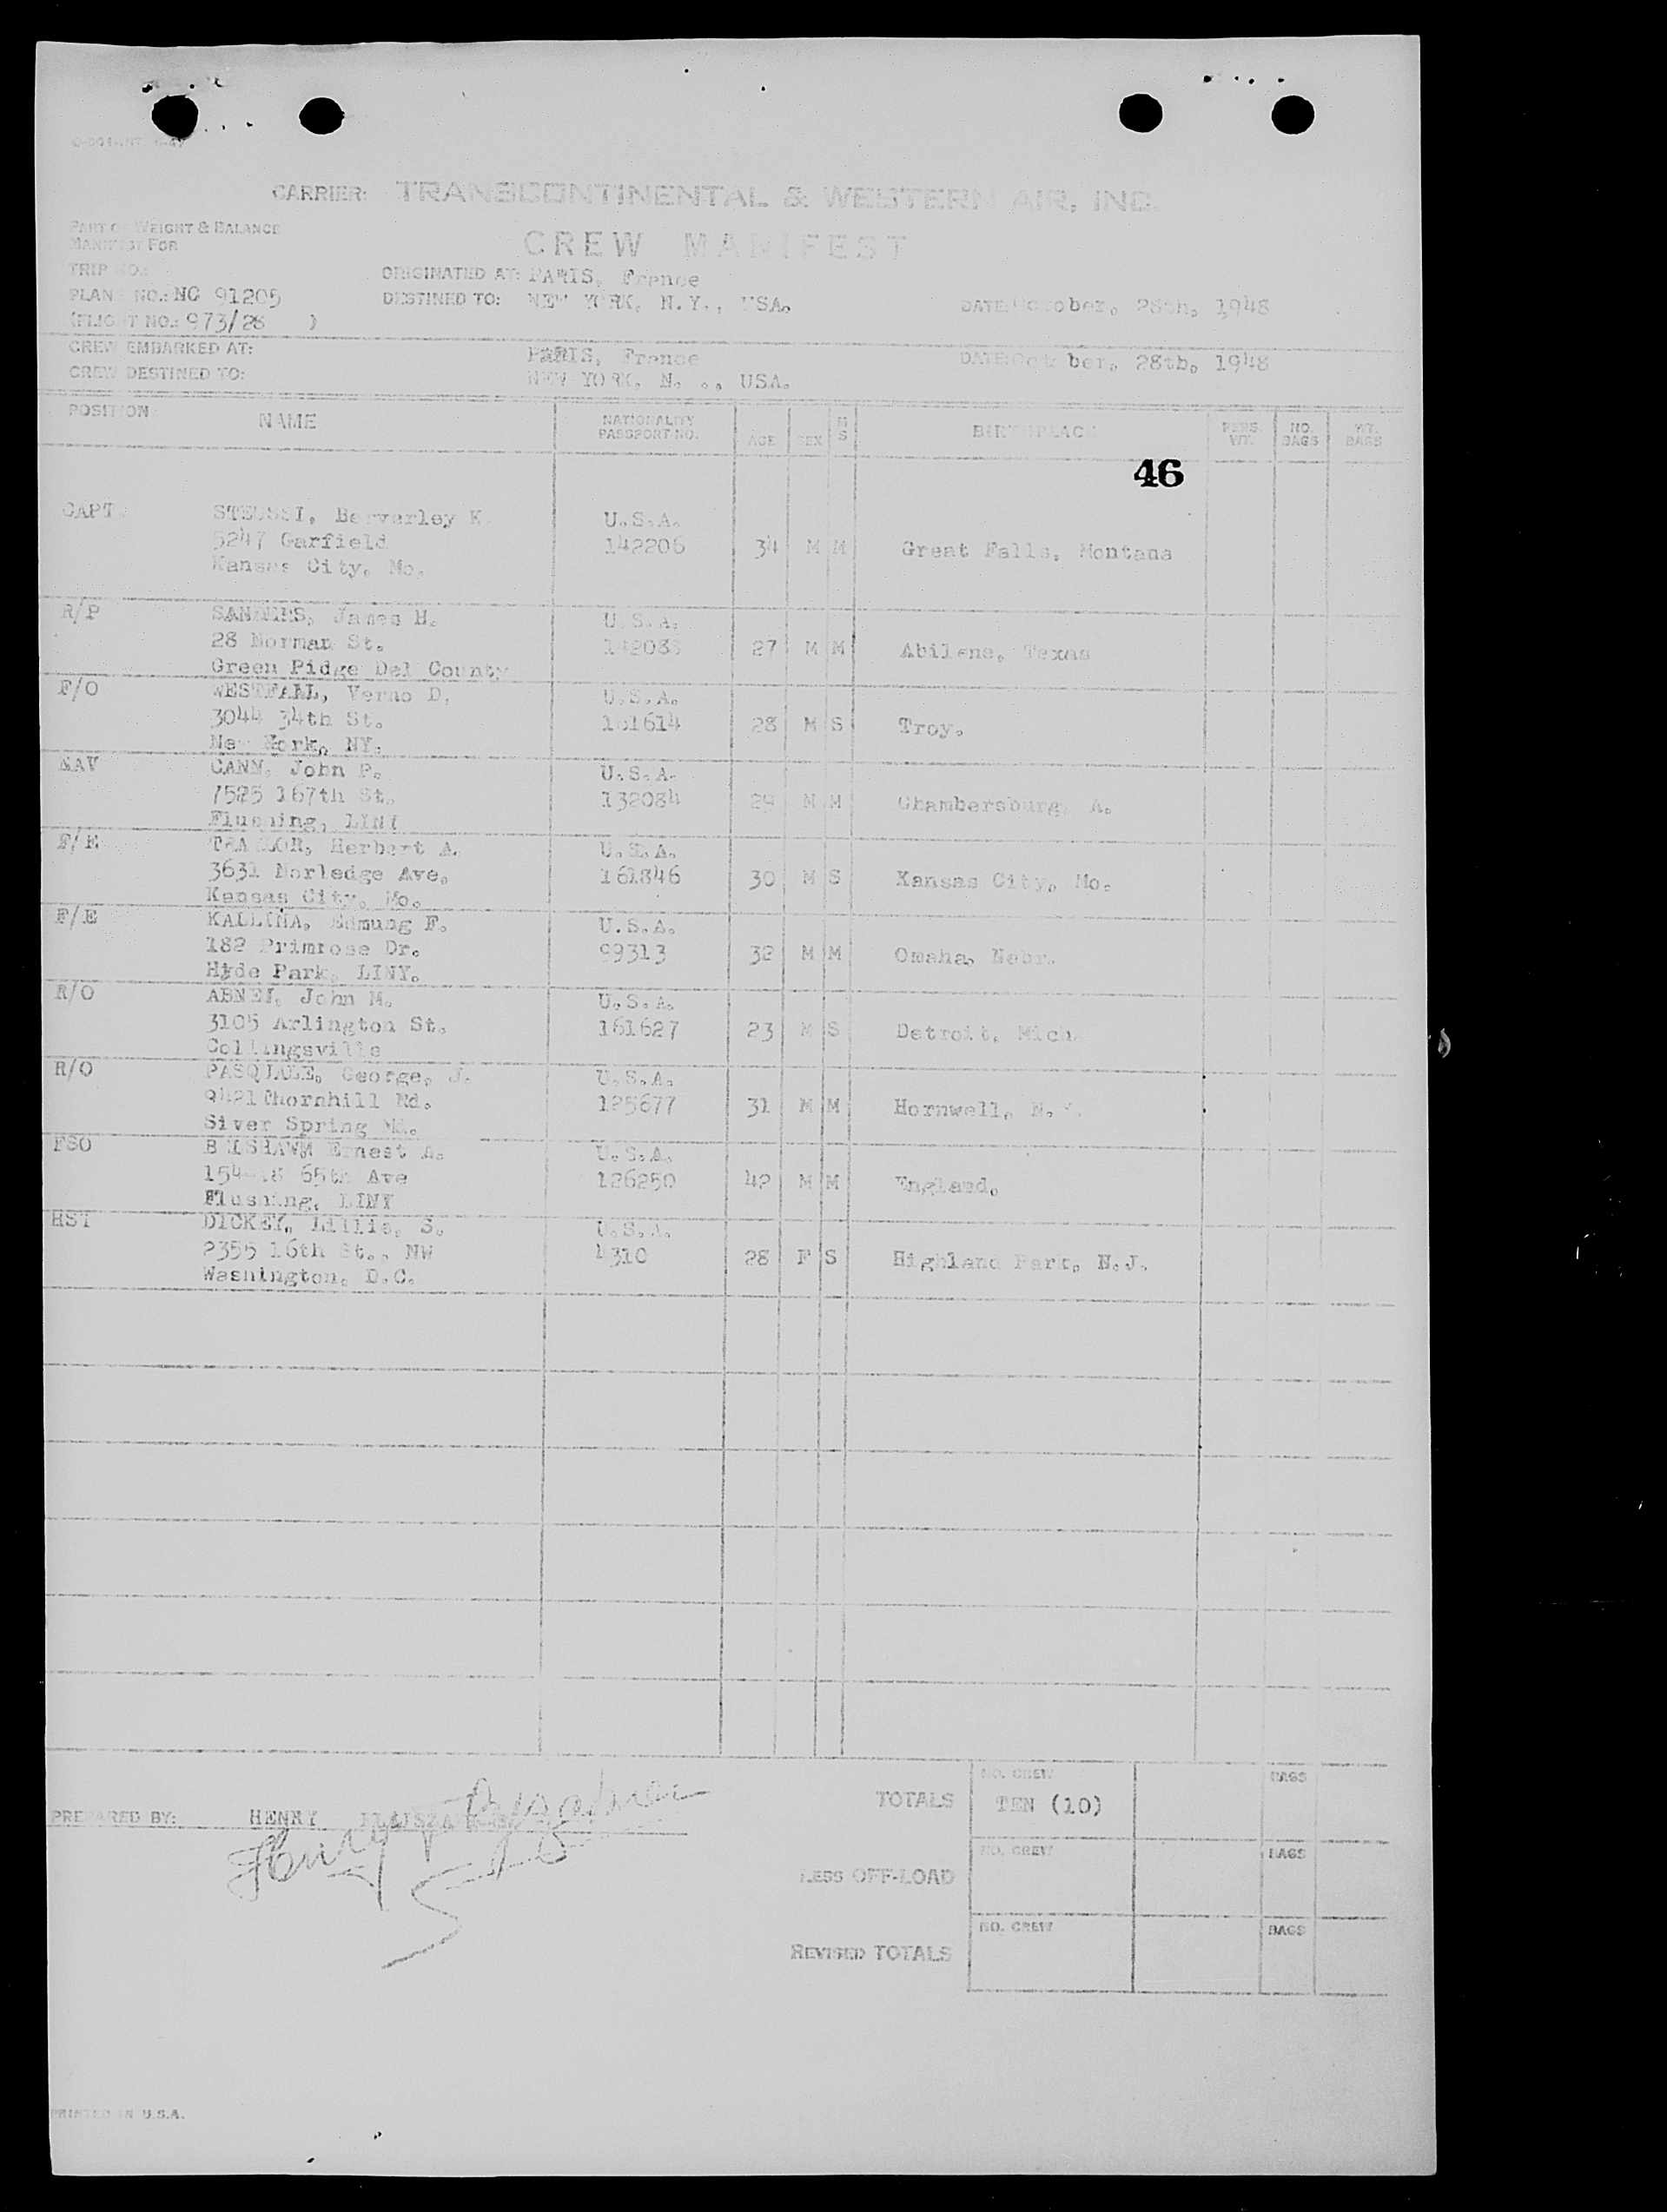 CARRIER: TRANSCONTINENTAL & WESTERN AIR, INC.
PART OF WEIGHT & BALANCE
MANIFEST FOR
CREW MANIFEST
TRIP NO.:
ORIGINATED AT: PARIS, France
PLANE NO.: NC 91205
DESTINED TO: NEW YORK, N.Y., USA.
DATE: October, 28th, 1948
(FLIGHT NO.: 973/28 )
CREW EMBARKED AT: PARIS, France
DATE: October, 28th, 1948
CREW DESTINED TO: NEW YORK, N. ., USA.
POSITION NAME NATIONALITY PASSPORT NO. AGE SEX M S BIRTHPLACE PERS. WT. NO. BAGS WT. BAGS
46
CAPT. STEUSSI, Berverley K. U.S.A.
5247 Garfield 142206 34 M M Great Falls, Montana
Kansas City, Mo.
R/P SANDERS, James H. U.S.A.
28 Norman St. 27 M M Abilene, Texas
Green Ridge Del County
F/O WESTFALL, Verno D. U.S.A.
3044 34th St. 161614 28 M S Troy.
New York, NY.
NAV CANN, John P. U.S.A.
7525 167th St. 132084 29 M M Chambersburg, A.
Flushing, LINY
F/E TRAYLOR, Herbert A. U.S.A.
3631 Norledge Ave. 161846 30 M S Kansas City, Mo.
Kansas City, Mo.
F/E KALLINA, Edmung F. U.S.A.
182 Primrose Dr. 99313 32 M M Omaha, Nebr.
Hyde Park, LINY.
R/O ABNEY, John M. U.S.A.
3105 Arlington St. 161627 23 M S Detroit, Mich.
Collingsville
R/O PASQUALE, George, J. U.S.A.
9421 Thornhill Rd. 125677 31 M M Hornwell, N.Y.
Siver Spring Md.
FSO Ernest A. U.S.A.
65th Ave 126250 42 M M England.
Flushing, LINY
HST DICKEY, Lillie, S. U.S.A.
2355 16th St., NW 4310 28 F S Highland Park, N.J.
Washington, D.C.
TOTALS NO. CREW TEN (10) BAGS
PREPARED BY: HENRY
LESS OFF-LOAD NO. CREW BAGS
REVISED TOTALS NO. CREW BAGS
PRINTED IN U.S.A.